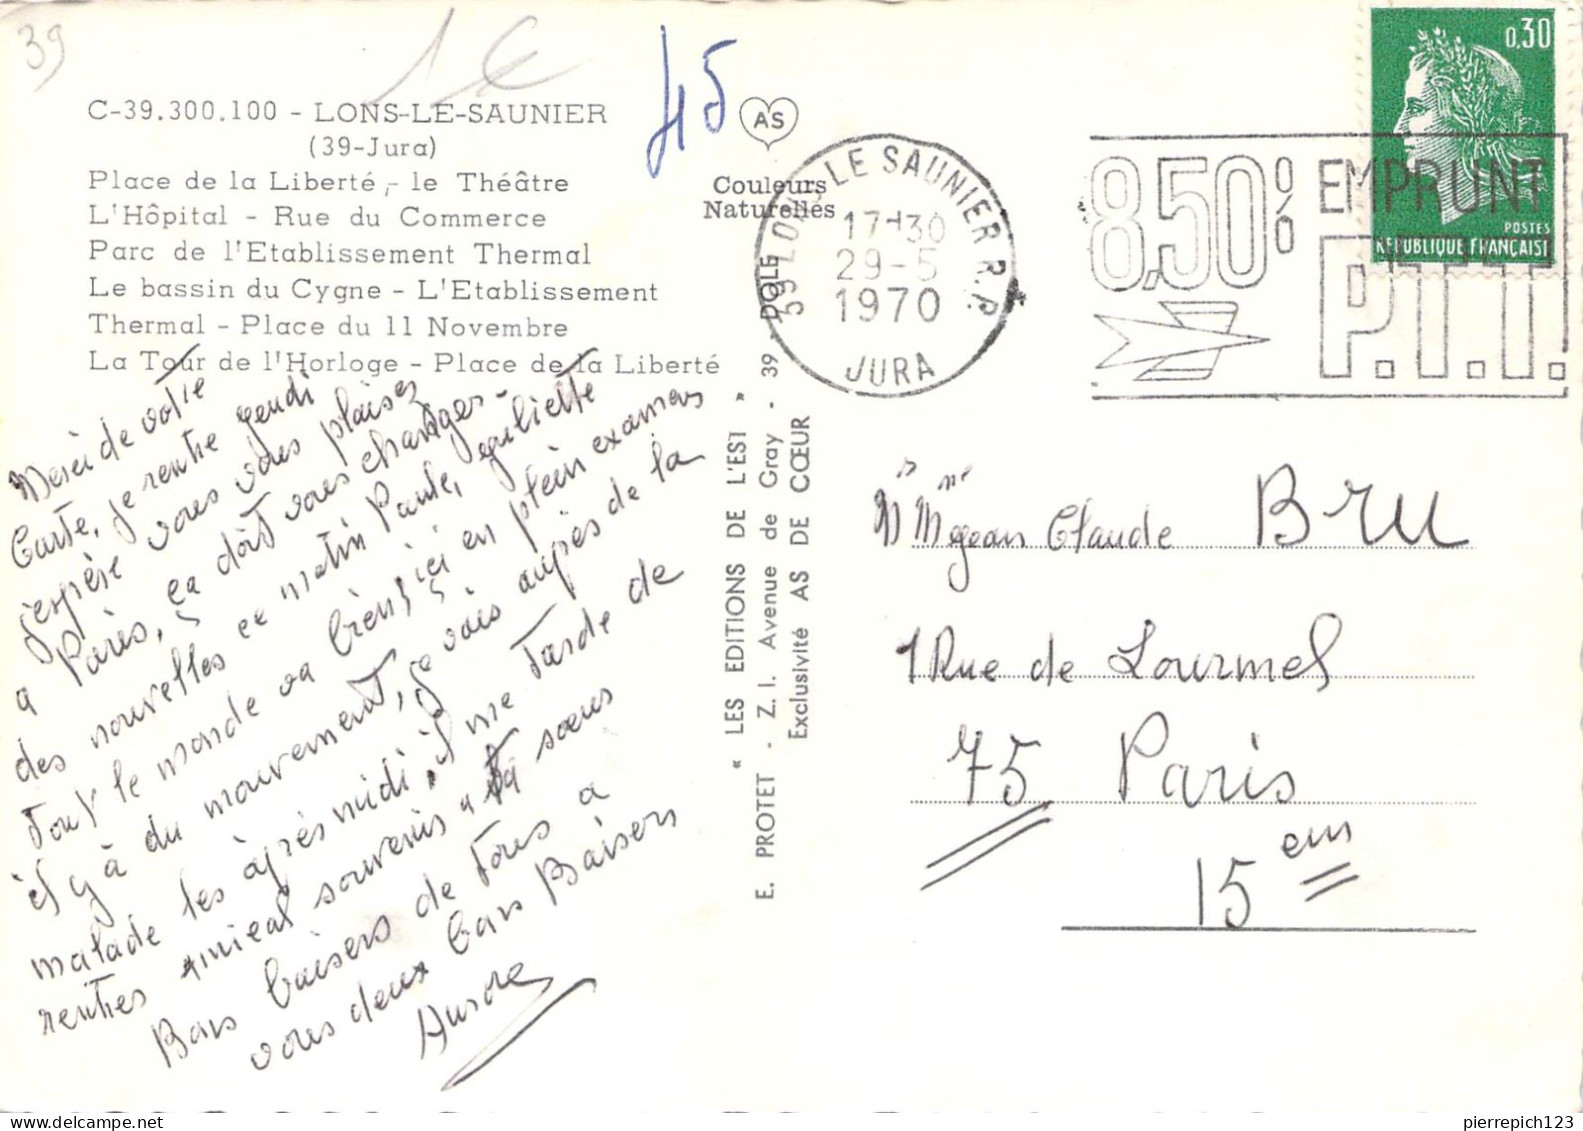 39
1 €
45
C-39.300.100 - LONS-LE-SAUNIER
(39-Jura)
Place de la Liberté,- le Théâtre
L'Hôpital - Rue du Commerce
Parc de l'Etablissement Thermal
Le bassin du Cygne - L'Etablissement
Thermal - Place du 11 Novembre
La Tour de l'Horloge - Place de la Liberté
AS
Couleurs
Naturelles
39 LONS LE SAUNIER R.P.
17H30
29-5
1970
JURA
8,50% EMPRUNT
P.T.T.
0,30
POSTES
REPUBLIQUE FRANÇAISE
Merci de votre
Carte, je rentre jeudi
j'espère vous vous plaisez
a Paris, ça doit vous changer-
des nouvelles ce matin Paule, Juliette
Tout le monde va bien, ici en plein examens
il y à du mouvement, je vais auprès de la
malade les après midi, il me tarde de
rentrer amical souvenir a ta sœur
Bons baisers de tous a
vous deux Bons Baisers
Aurore
E. PROTET - « LES EDITIONS DE L'EST »
Z. I. Avenue de Gray - 39 - DOLE
Exclusivité AS DE CŒUR
Mr Mme Jean Claude BRU
1 Rue de Lourmel
75 Paris
15 em
pierrepich123